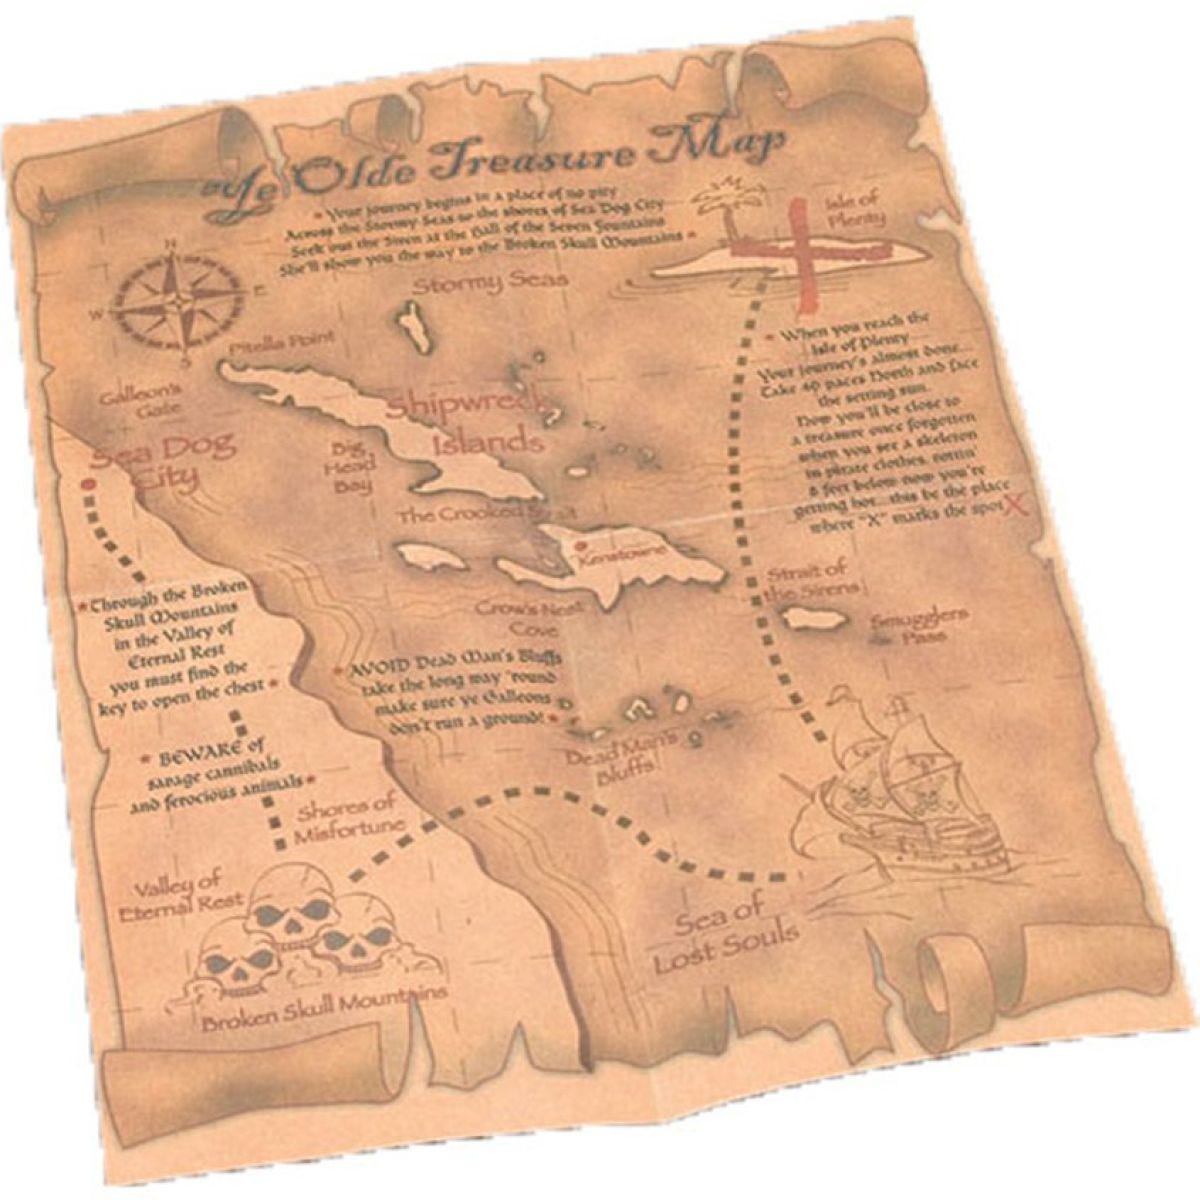 Ye Olde Treasure Map
* Your journey begins in a place of no pity
Across the Stormy Seas to the shores of Sea Dog City
Seek out the Siren at the Hall of the Seven Fountains
She'll show you the way to the Broken Skull Mountains *
Isle of
Plenty
N
W
E
S
Stormy Seas
Pitella Point
Galleon's
Gate
Sea Dog
City
Shipwreck
Islands
Big
Head
Bay
The Crooked Strait
Kenstowne
Crow's Nest
Cove
* When you reach the
Isle of Plenty
Your journey's almost done...
Take 40 paces North and face
the setting sun.
Now you'll be close to
a treasure once forgotten
when you see a skeleton
in pirate clothes, rottin'
6 feet below now you're
getting hot... this be the place
where "X" marks the spot X
Strait of
the Sirens
Smugglers
Pass
* Through the Broken
Skull Mountains
in the Valley of
Eternal Rest
you must find the
key to open the chest *
* AVOID Dead Man's Bluffs
take the long way 'round
make sure ye Galleons
don't run a ground! *
Dead Man's
Bluffs
* BEWARE of
savage cannibals
and ferocious animals *
Shores of
Misfortune
Valley of
Eternal Rest
Broken Skull Mountains
Sea of
Lost Souls